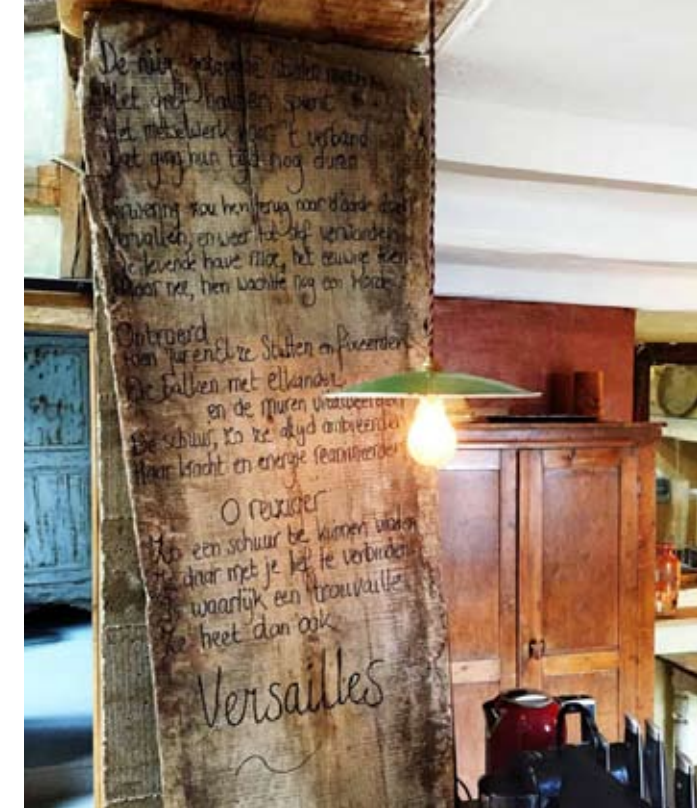 De
Het gebint spint
Het metselwerk voor 't verband
Dat ging hun tijd nog duren
Verwering zou hen terug naar d'aarde doen
Vervallen, en weer tot stof verworden
De levende have moe, het eeuwige
Maar nee, hen wachtte nog een
Ontroerd
toen Jur en Elze Stutten en fixeerden
De balken met elkander
en de muren
De schuur, zo ze altijd ambieerde
Haar kracht en energie reanimeerden
O reiziger
Zo een schuur te kunnen vinden
daar met je lief te verbinden
waarlijk een trouvaille
Ze heet dan ook
Versailles